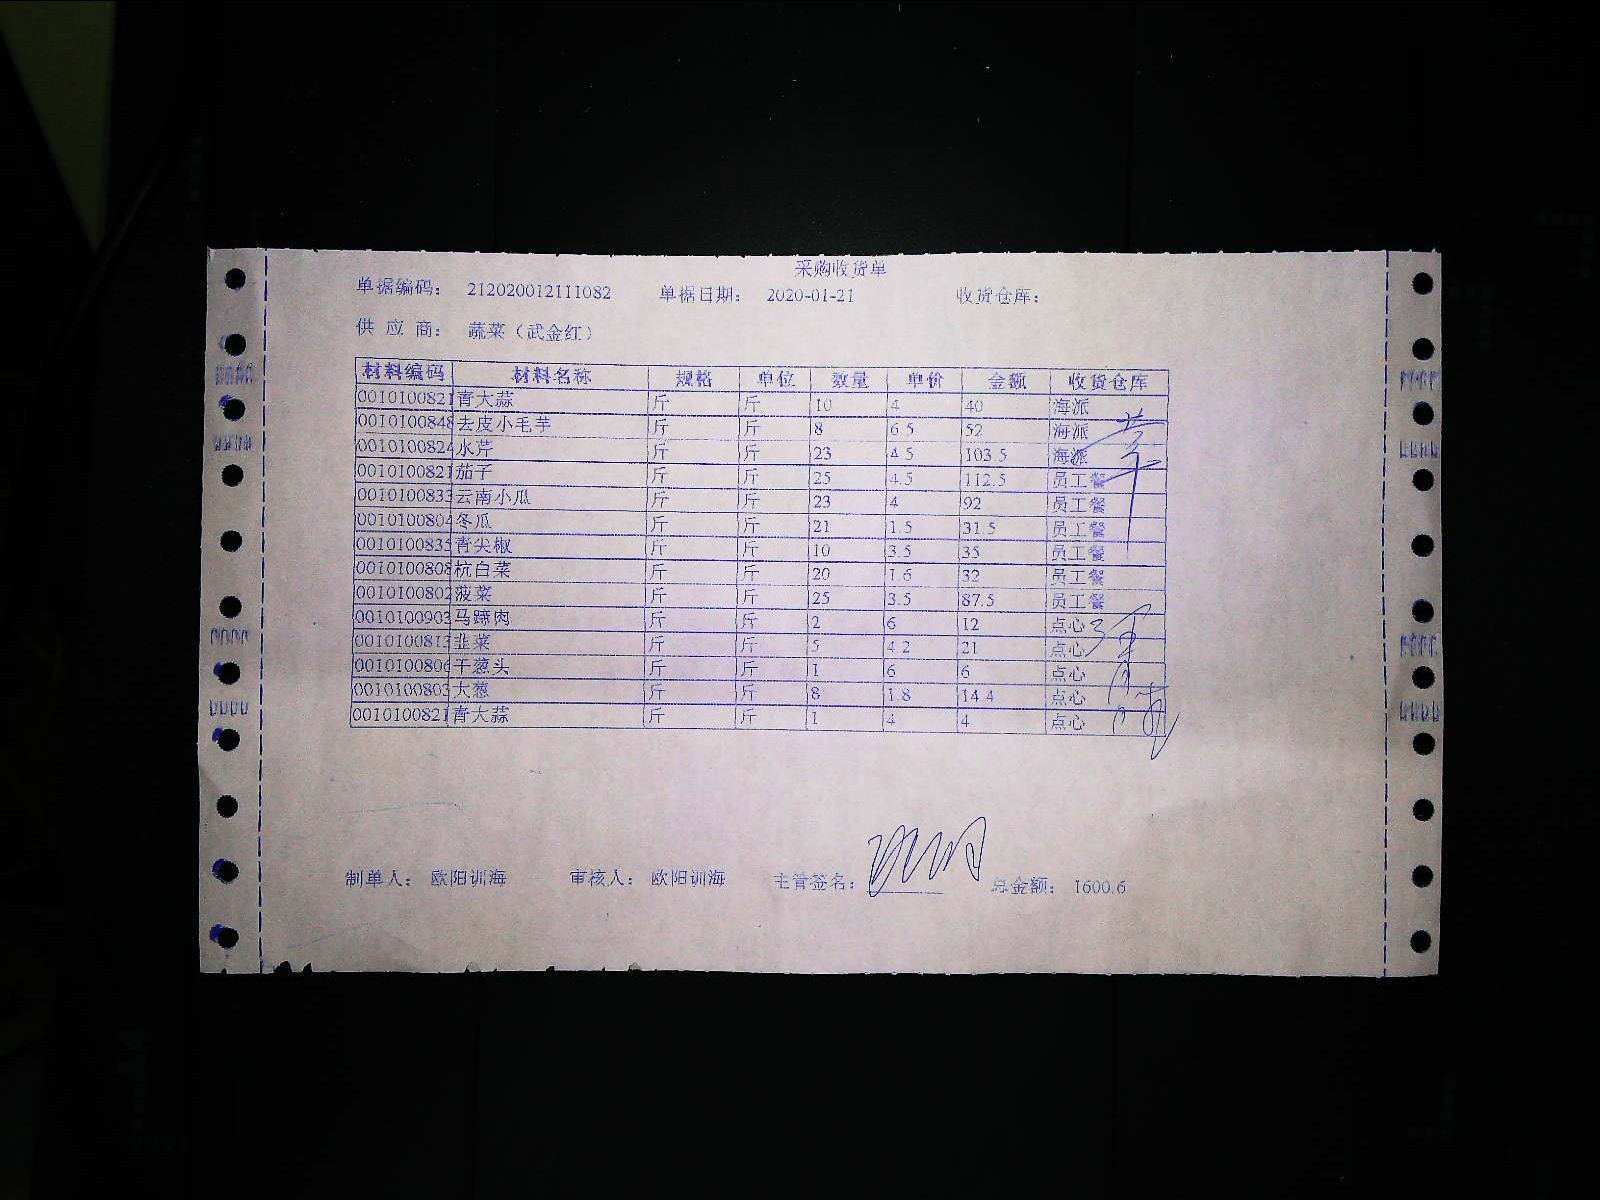 采购收货单
单据编码： 212020012111082 单据日期： 2020-01-21 收货仓库：
供 应 商： 蔬菜（武金红）
材料编码 材料名称 规格 单位 数量 单价 金额 收货仓库
0010100821 青大蒜 斤 斤 10 4 40 海派
0010100848 去皮小毛芋 斤 斤 8 6.5 52 海派
0010100824 水芹 斤 斤 23 4.5 103.5 海派
0010100821 茄子 斤 斤 25 4.5 112.5 员工餐
0010100833 云南小瓜 斤 斤 23 4 92 员工餐
0010100804 冬瓜 斤 斤 21 1.5 31.5 员工餐
0010100835 青尖椒 斤 斤 10 3.5 35 员工餐
0010100808 杭白菜 斤 斤 20 1.6 32 员工餐
0010100802 菠菜 斤 斤 25 3.5 87.5 员工餐
0010100903 马蹄肉 斤 斤 2 6 12 点心
0010100813 韭菜 斤 斤 5 4.2 21 点心
0010100806 干葱头 斤 斤 1 6 6 点心
0010100803 大葱 斤 斤 8 1.8 14.4 点心
0010100821 青大蒜 斤 斤 1 4 4 点心
制单人： 欧阳训海 审核人： 欧阳训海 主管签名： 总金额： 1600.6